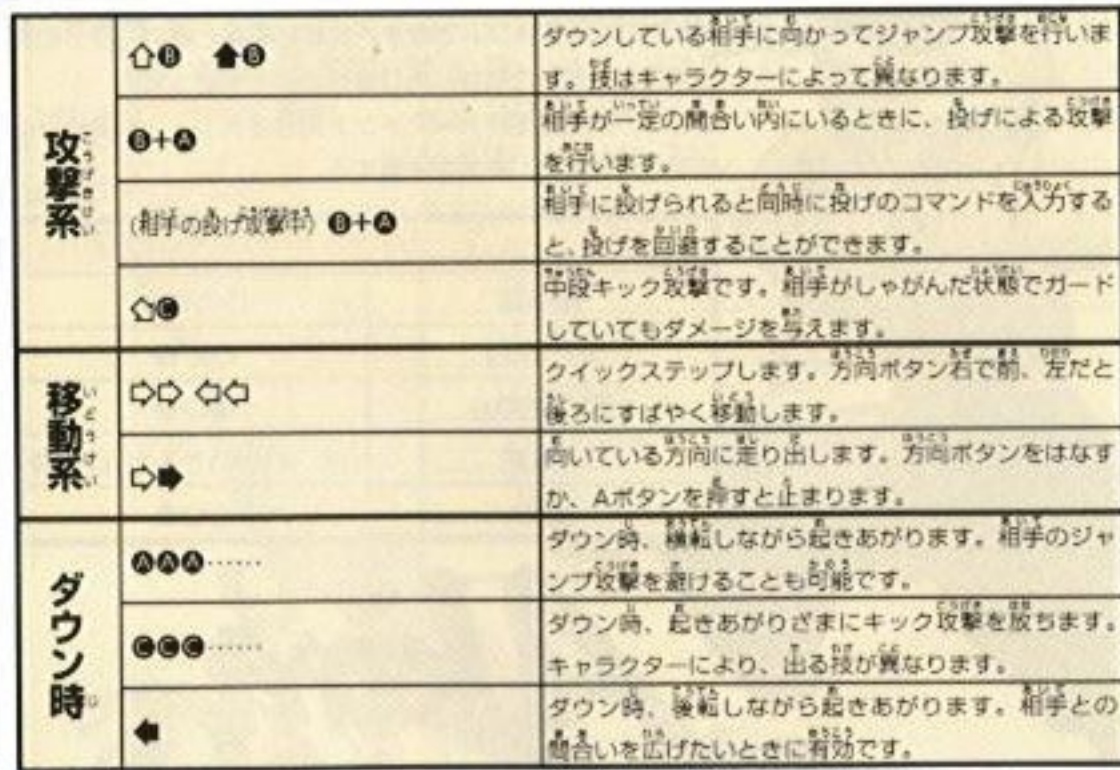 攻撃系
⇧Ⓑ ⬆Ⓑ
ダウンしている相手に向かってジャンプ攻撃を行いま
す。技はキャラクターによって異なります。
Ⓑ+Ⓐ
相手が一定の間合い内にいるときに、投げによる攻撃
を行います。
(相手の投げ攻撃中) Ⓑ+Ⓐ
相手に投げられると同時に投げのコマンドを入力する
と、投げを回避することができます。
⇧Ⓒ
中段キック攻撃です。相手がしゃがんだ状態でガード
していてもダメージを与えます。
移動系
⇨⇨ ⇦⇦
クイックステップします。方向ボタン右で前、左だと
後ろにすばやく移動します。
⇨➡
向いている方向に走り出します。方向ボタンをはなす
か、Aボタンを押すと止まります。
ダウン時
ⒶⒶⒶ……
ダウン時、横転しながら起きあがります。相手のジャ
ンプ攻撃を避けることも可能です。
ⒸⒸⒸ……
ダウン時、起きあがりざまにキック攻撃を放ちます。
キャラクターにより、出る技が異なります。
⬅
ダウン時、後転しながら起きあがります。相手との
間合いを広げたいときに有効です。